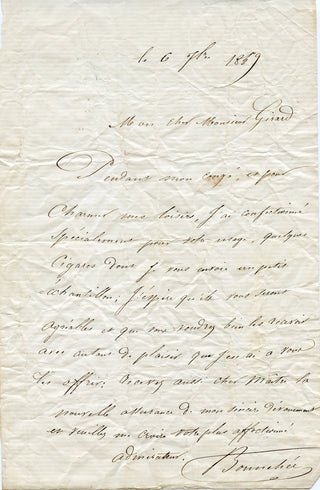 le 6 7bre 1869
Mon cher Monsieur Girard
Pendant mon congé, et pour
Charmer mes loisirs, J'ai confectionné
spécialement pour votre usage, quelques
Cigares dont Je vous envoie un petit
échantillon; J'espère qu'ils vous seront
agréables et que vous voudrez bien les recevoir
avec autant de plaisir que j'en ai a vous
les offrir; Recevez aussi cher Maître la
nouvelle assurance de mon sincère dévouement
et veuillez me croire votre plus affectionné
admirateur.